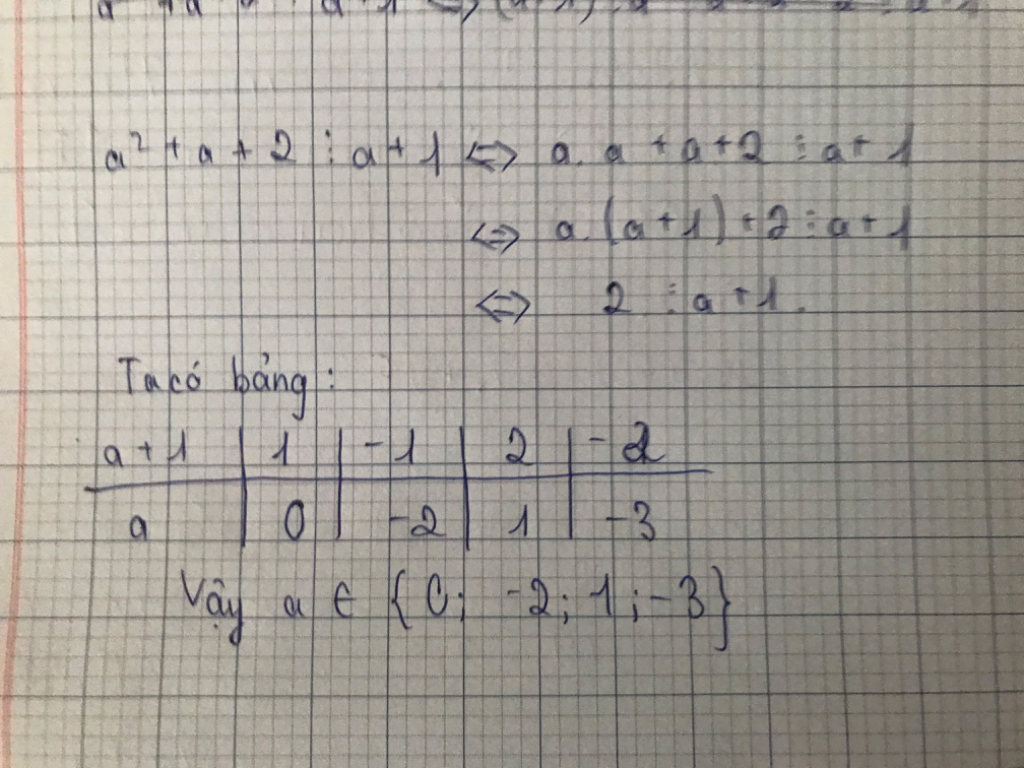 a² + a + 2 ⋮ a + 1 <=> a. a + a + 2 ⋮ a + 1
<=> a. (a + 1) + 2 ⋮ a + 1
<=> 2 ⋮ a + 1.
Ta có bảng:
a + 1 | 1 | -1 | 2 | -2
a | 0 | -2 | 1 | -3
Vậy a ∈ {0; -2; 1; -3}